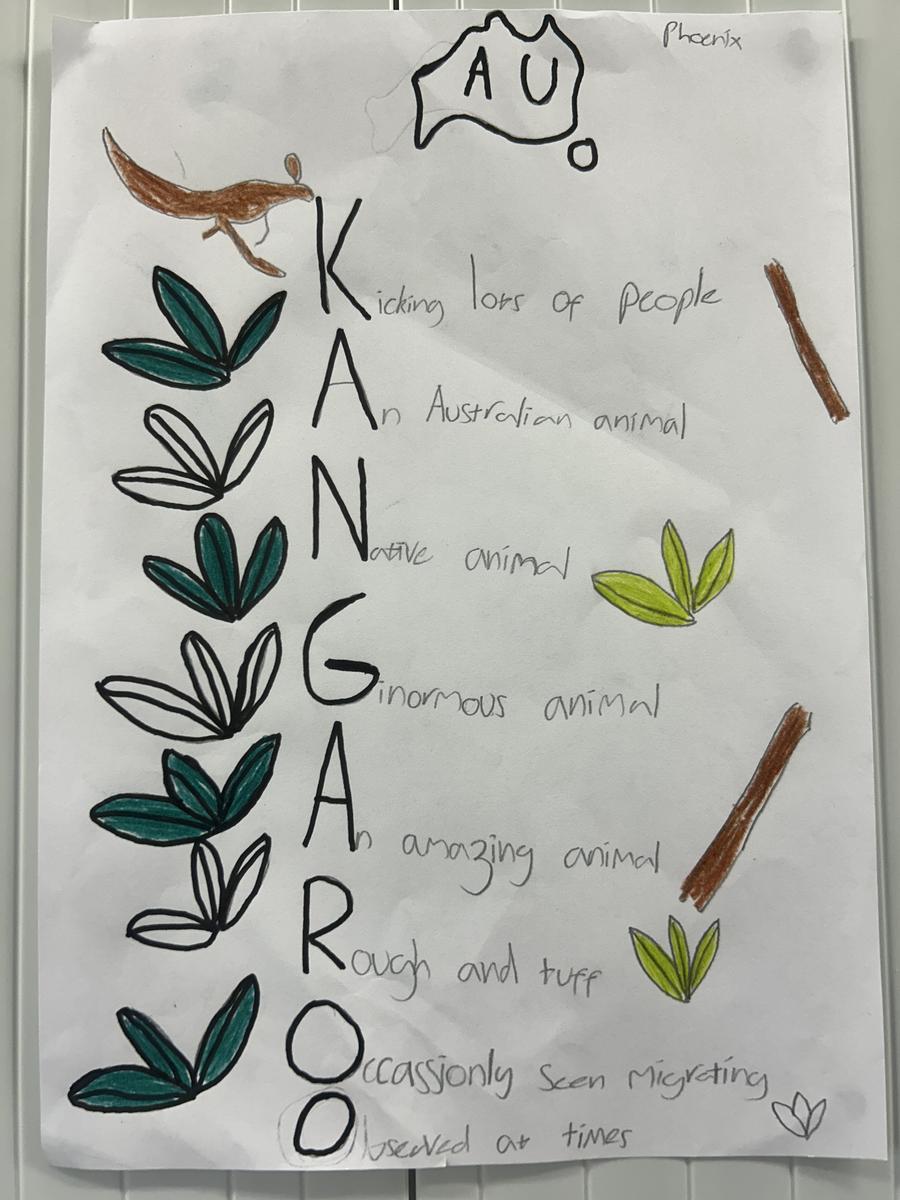 Phoenix
AU
Kicking lots of people
An Australian animal
Native animal
Ginormous animal
An amazing animal
Rough and tuff
Occassionly seen migrating
Observed at times